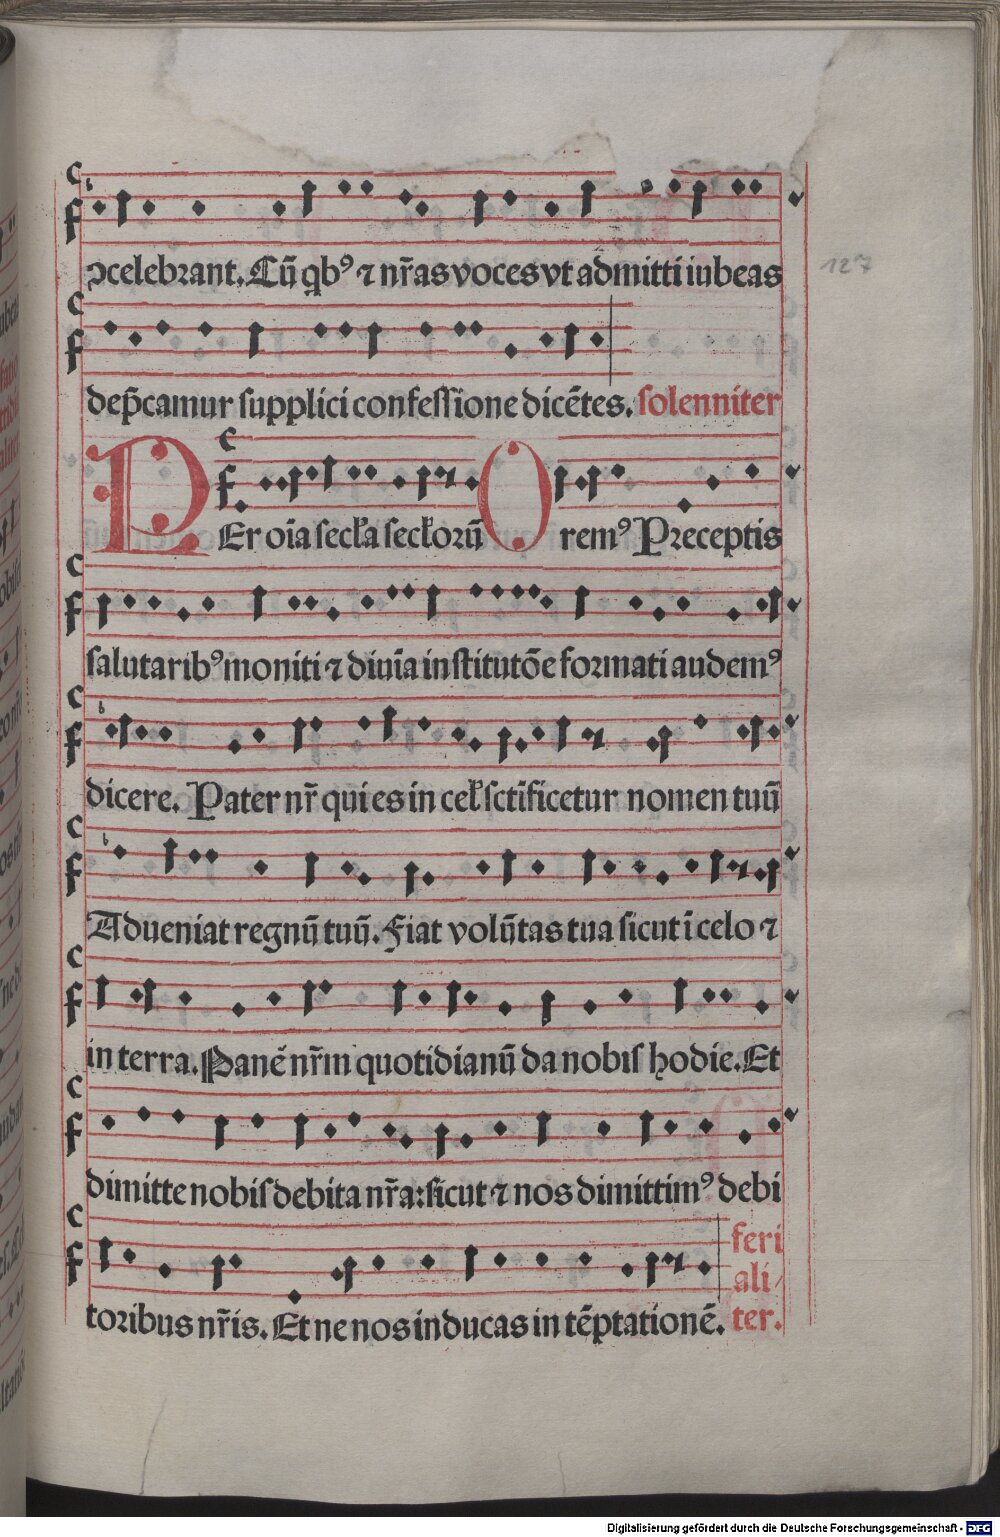 ↄcelebrant. Cū qbꝰ ⁊ nr̄as voces vt admitti iubeas
127
dep̄camur supplici confessione dicētes. solenniter
PEr oīa secła secłorū Oremꝰ Preceptis
salutaribꝰ moniti ⁊ diuīa institutōe formati audemꝰ
dicere. Pater nr̄ qui es in ceł sctīficetur nomen tuū
Adueniat regnū tuū. Fiat volūtas tua sicut ī celo ⁊
in terra. Panē nr̄m quotidianū da nobis hodie. Et
dimitte nobis debita nr̄a: sicut ⁊ nos dimittimꝰ debi
toribus nr̄is. Et ne nos inducas in tēptationē. feri
ali
ter.
Digitalisierung gefördert durch die Deutsche Forschungsgemeinschaft - DFG